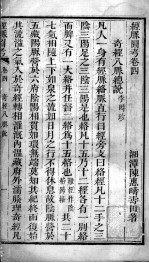 經脈圖考卷四
湘潭陳惠疇寿田著
奇經八脈總說 李時珍
凡人一身有經脈絡脈直行曰經旁支曰絡經凡十二手之三
陰三陽足之三陰三陽是也絡凡十五乃十二經各有一別絡
而脾又有一大絡并任督二絡爲十五也
共二十
七氣相隨上下如泉之流如日月之行不得休息故陰脈營於
五藏陽脈營於六府陰陽相貫如環無端莫知其紀終而復始
其流溢之氣入於奇經轉相灌溉內溫藏府外濡腠理奇經凡
卷四 奇經八脈